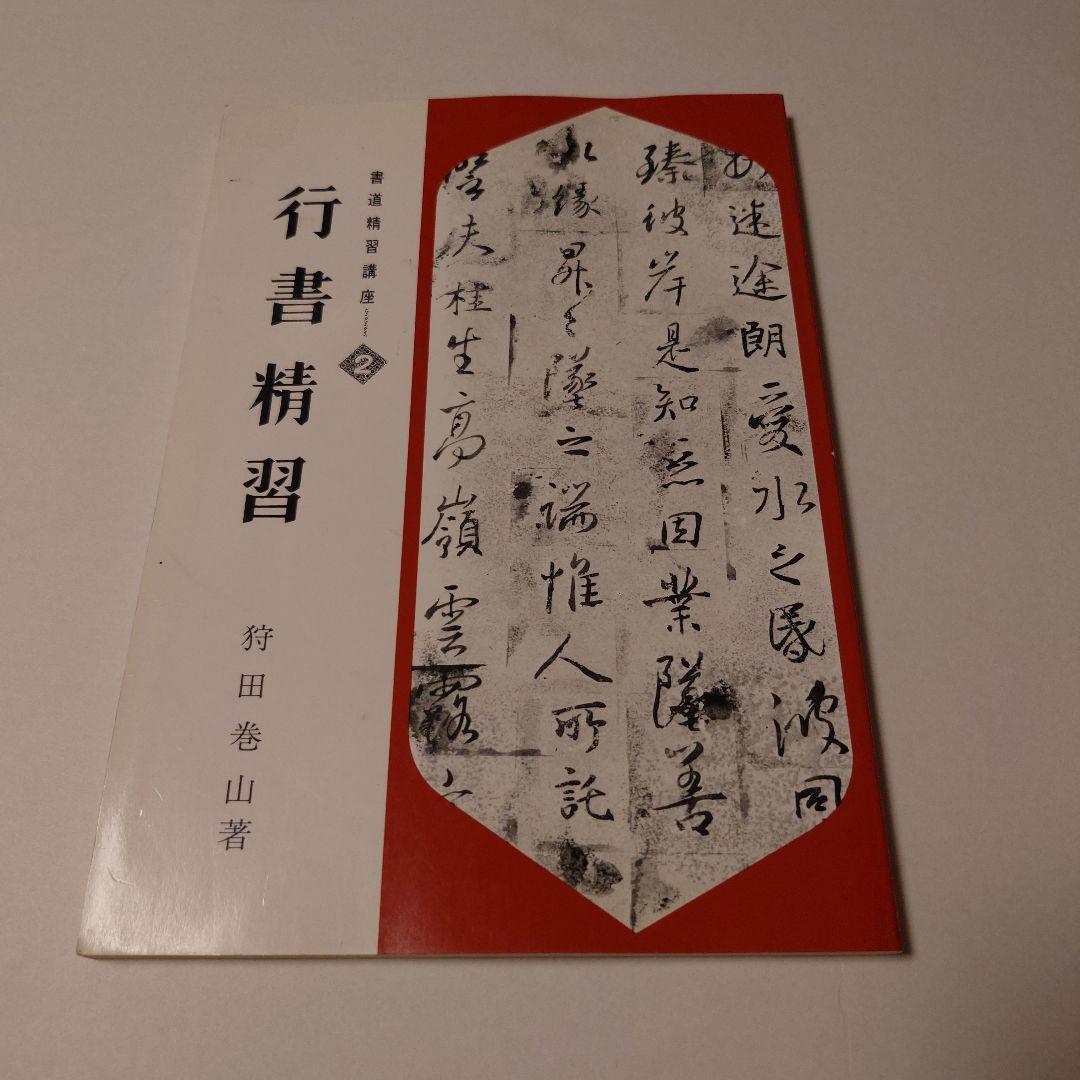 書道精習講座 2
行書精習
狩田巻山著
迷途朗愛水之昬波同
臻彼岸是知惡因業墜善
以緣昇々墜之端惟人所託
譬夫桂生高嶺雲露